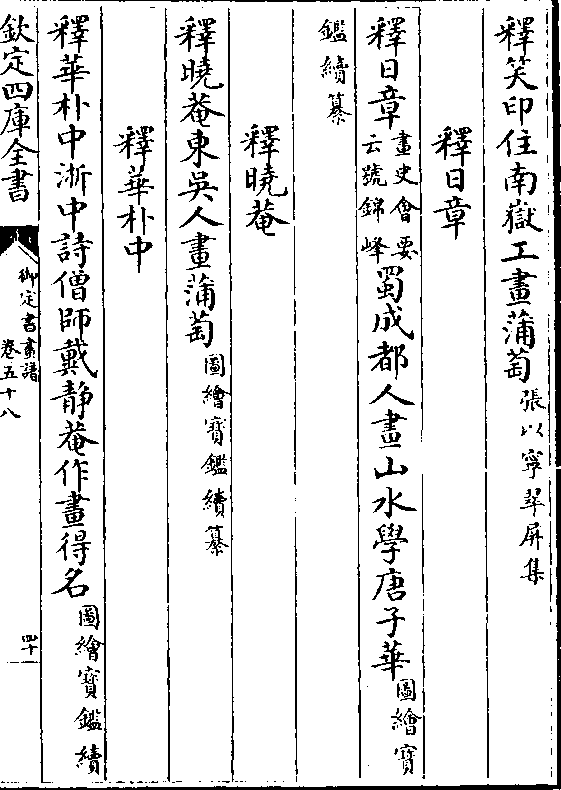 釋笑印住南嶽工畫蒲萄張以寧翠屏集
釋日章
釋日章畫史會要云號錦峰蜀成都人畫山水學唐子華圖繪寶
鑑續纂
釋曉菴
釋曉菴東吳人畫蒲萄圖繪寶鑑續纂
釋華朴中
釋華朴中浙中詩僧師戴靜菴作畫得名圖繪寶鑑續
欽定四庫全書
御定書畫譜
卷五十八
四十